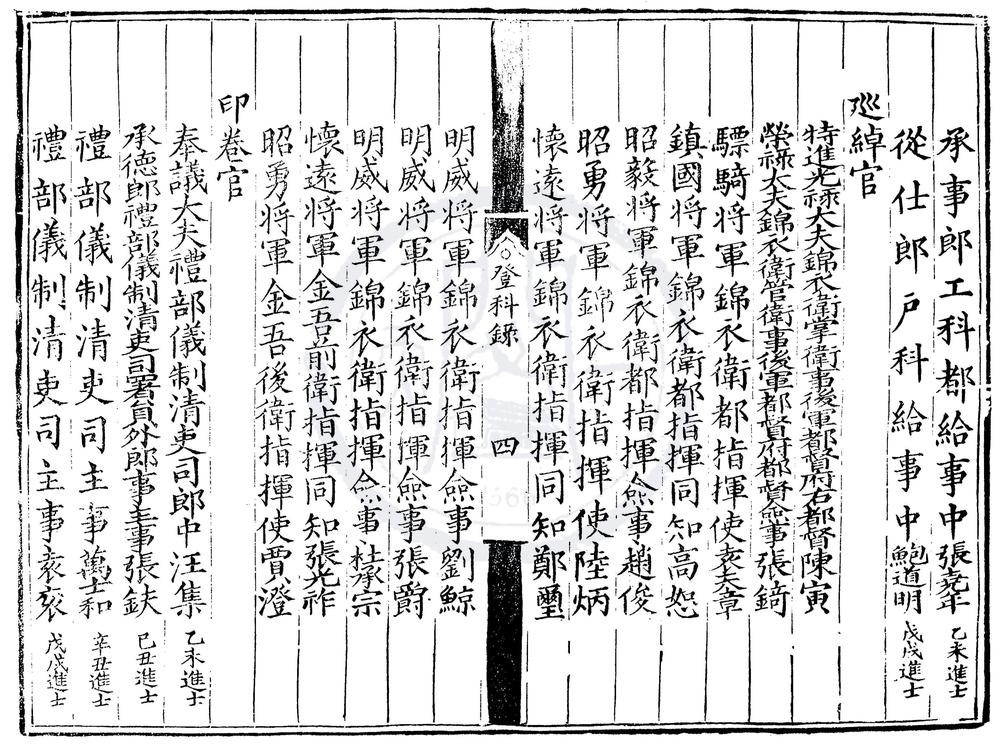 承事郎工科都給事中張堯年乙未進士
從仕郎戶科給事中鮑道明戊戌進士
廵綽官
特進光祿大夫錦衣衛掌衛事後軍都督府右都督陳寅
榮祿大夫錦衣衛管衛事後軍都督府都督僉事張錡
驃騎將軍錦衣衛都指揮使袁天章
鎮國將軍錦衣衛都指揮同知高恕
昭毅將軍錦衣衛都指揮僉事趙俊
昭勇將軍錦衣衛指揮使陸炳
懷遠將軍錦衣衛指揮同知鄭璽
登科錄
四
明威將軍錦衣衛指揮僉事劉鯨
明威將軍錦衣衛指揮僉事張爵
明威將軍錦衣衛指揮僉事杜承宗
懷遠將軍金吾前衛指揮同知張光祚
昭勇將軍金吾後衛指揮使賈澄
印卷官
奉議大夫禮部儀制清吏司郎中汪集乙未進士
承德郎禮部儀制清吏司署員外郎事主事張鈇己丑進士
禮部儀制清吏司主事萬士和辛丑進士
禮部儀制清吏司主事袁袠戊戌進士